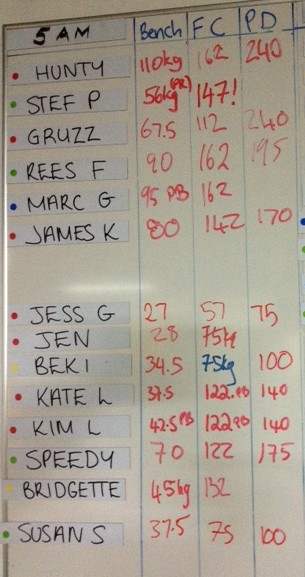 5 AM Bench FC PD
HUNTY 110kg 162 240
STEF P 56kg (PB) 147!
GRUZZ 67.5 112 240
REES F 90 162 195
MARC G 95 PB 162
JAMES K 80 142 170
JESS G 27 57 75
JEN 28 75kg
BEKI 34.5 75kg 100
KATE L 37.5 122.PB 140
KIM L 42.5 PB 122PB 140
SPEEDY 70 122 175
BRIDGETTE 45kg 132
SUSAN S 37.5 75 100